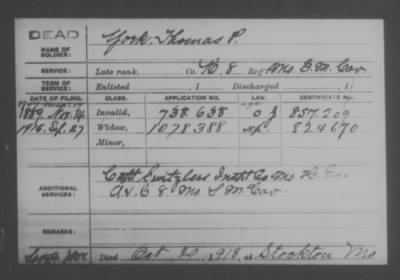 DEAD
York, Thomas P.
NAME OF SOLDIER:
SERVICE: Late rank, Co. H, 8 Reg't Mo S. M. Cav
TERM OF SERVICE: Enlisted , 1 Discharged , 1
DATE OF FILING. CLASS. APPLICATION NO. LAW. CERTIFICATE NO.
1889 Nov. 14 Invalid, 738.638 857.209
1918, 27 Widow, 1078.388 824670
Minor,
ADDITIONAL SERVICES:
Capt Co Mo H. G.
8 Mo S M Cav.
REMARKS:
Died Oct 20, 1918, at Stockton Mo